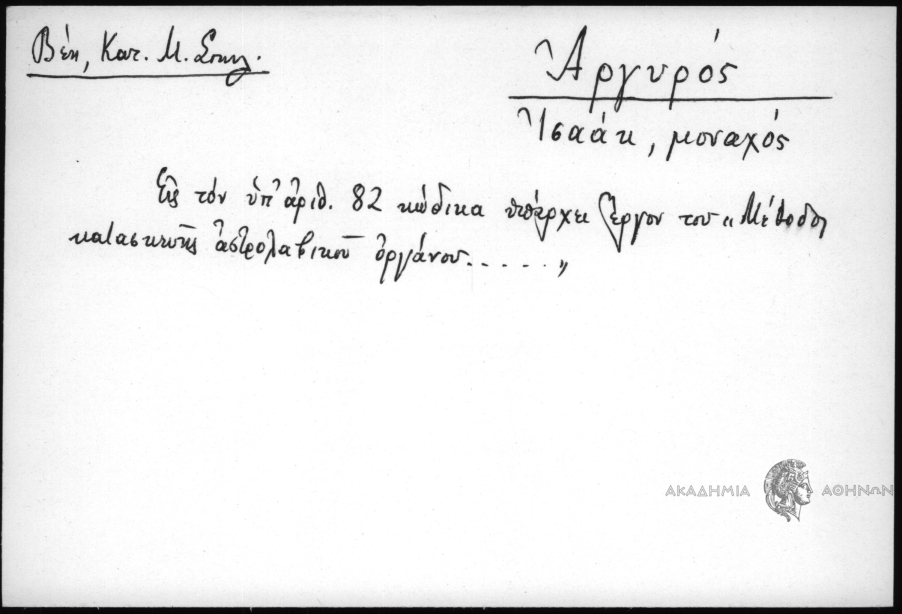 Βέη, Κατ. Μ. Σπηλ.
Ἀργυρός
Ἰσαάκ, μοναχός
Εἰς τόν ὑπ' ἀριθ. 82 κώδικα ὑπάρχει ἔργον του „Μέθοδος
κατασκευῆς ἀστρολαβικοῦ ὀργάνου......„
ΑΚΑΔΗΜΙΑ ΑΘΗΝΩΝ